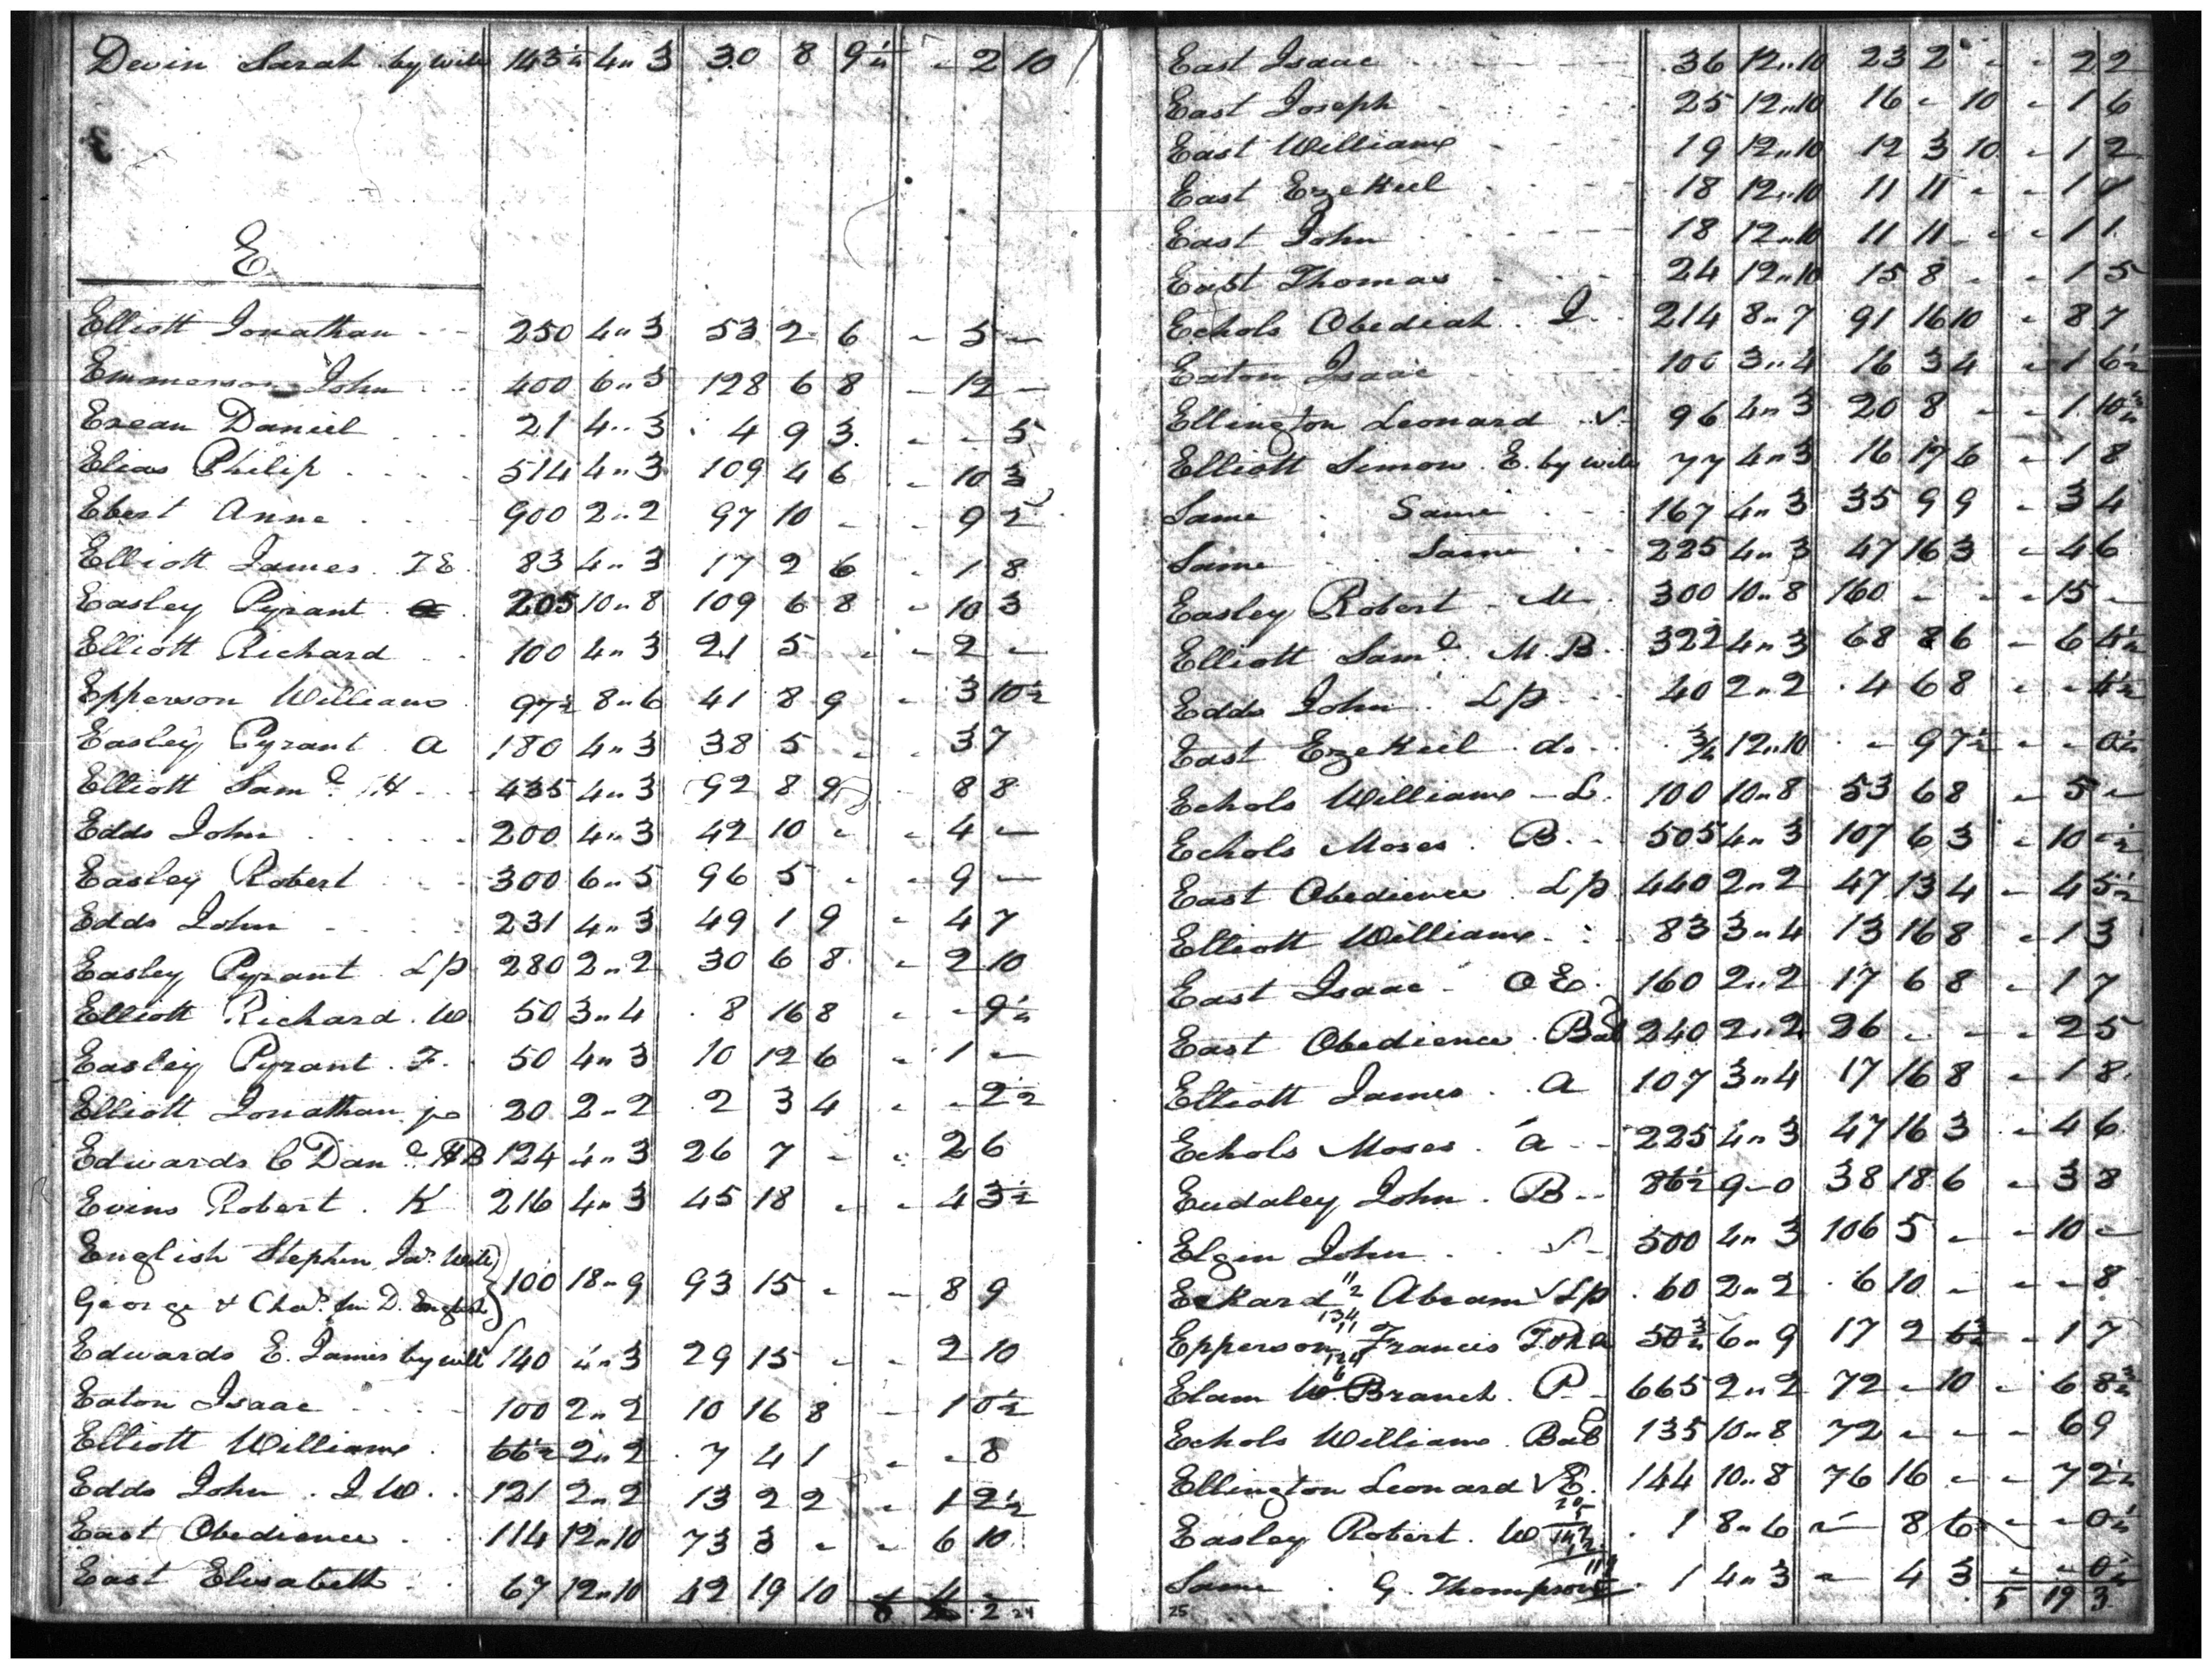 Devin Sarah by will 143½ 4〃3 30 8 9½ - 2 10
E
Elliott Jonathan 250 4〃3 53 2 6 - 5 -
Emmerson John 400 6〃5 128 6 8 - 12 -
Ezean Daniel 21 4〃3 4 9 3 - - 5
Elias Philip 514 4〃3 109 4 6 - 10 3
Ebert Anne 900 2〃2 97 10 - - 9 2
Elliott James 83 4〃3 17 2 6 - 1 8
Easley Pyrant 205 10〃8 109 6 8 - 10 3
Elliott Richard 100 4〃3 21 5 - - 2 -
Epperson William 97½ 8〃6 41 8 9 - 3 10½
Easley Pyrant a 180 4〃3 38 5 - - 3 7
Elliott Saml. H 435 4〃3 92 8 9 - 8 8
Edds John 200 4〃3 42 10 - - 4 -
Easley Robert 300 6〃5 96 5 - - 9 -
Edds John 231 4〃3 49 1 9 - 4 7
Easley Pyrant Lp 280 2〃2 30 6 8 - 2 10
Elliott Richard W 50 3〃4 8 16 8 - - 9½
Easley Pyrant F. 50 4〃3 10 12 6 - 1 -
Elliott Jonathan jr 20 2〃2 2 3 4 - - 2½
Edwards C Danl. HB 124 4〃3 26 7 - - 2 6
Evins Robert. K 216 4〃3 45 18 - - 4 3½
English Stephen, Jas. Will
George & Chas. fm D. English 100 18〃9 93 15 - - 8 9
Edwards E. James by will 140 4〃3 29 15 - - 2 10
Eaton Isaac 100 2〃2 10 16 8 - 1 0½
Elliott William 66½ 2〃2 7 4 1 - - 8
Edds John. J W. 121 2〃2 13 2 2 - 1 2½
East Obedience 114 12〃10 73 3 - - 6 10
East Elisabeth 67 12〃10 42 19 10 - 4 -
2 24
East Isaac 36 12〃10 23 2 - - 2 2
East Joseph 25 12〃10 16 - 10 - 1 6
East William 19 12〃10 12 3 10 - 1 2
East Ezekiel 18 12〃10 11 11 - - 1 1
East John 18 12〃10 11 11 - - 1 1
East Thomas 24 12〃10 15 8 - - 1 5
Echols Obediah J 214 8〃7 91 16 10 - 8 7
Eaton Isaac 100 3〃4 16 3 4 - 1 6½
Ellington Leonard ✓ 96 4〃3 20 8 - - 1 10¾
Elliott Simon E. by will 77 4〃3 16 17 6 - 1 8
Same Same 167 4〃3 35 9 9 - 3 4
Same Same 225 4〃3 47 16 3 - 4 6
Easley Robert M 300 10〃8 160 - - - 15 -
Elliott Saml. M. B. 322 4〃3 68 8 6 - 6 4½
Edds John Lp 40 2〃2 4 6 8 - - 4½
East Ezekiel do ¾ 12〃10 - 9 7½ - - 0½
Echols William L. 100 10〃8 53 6 8 - 5 -
Echols Moses. B. 505 4〃3 107 6 3 - 10 -½
East Obedience Lp 440 2〃2 47 13 4 - 4 5½
Elliott William 83 3〃4 13 16 8 - 1 3
East Isaac O E. 160 2〃2 17 6 8 - 1 7
East Obedience. Bal 240 2〃2 26 - - - 2 5
Elliott James. a 107 3〃4 17 16 8 - 1 8
Echols Moses. a 225 4〃3 47 16 3 - 4 6
Eudaley John. B 86½ 9-0 38 18 6 - 3 8
Elgin John 500 4〃3 106 5 - - 10 -
Eckard Abram ✓ Lp 60 2〃2 6 10 - - - 8
Epperson Francis 50¾ 6〃9 17 2 6½ - 1 7
Elam W. Branch. P 665 2〃2 72 - 10 - 6 8¾
Echols William Bal 135 10〃8 72 - - - 6 9
Ellington Leonard ✓ E. 144 10〃8 76 16 - - 7 2½
Easley Robert. W 1 8〃6 - 8 6 - - 0½
Same. G. Thompson 1 4〃3 - 4 3 - - 0½
25 5 19 3